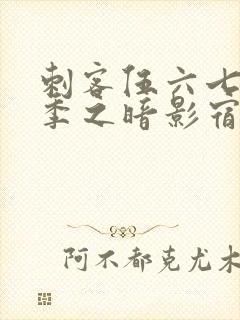 刺客伍六七
季之暗影宿
阿不都克尤木